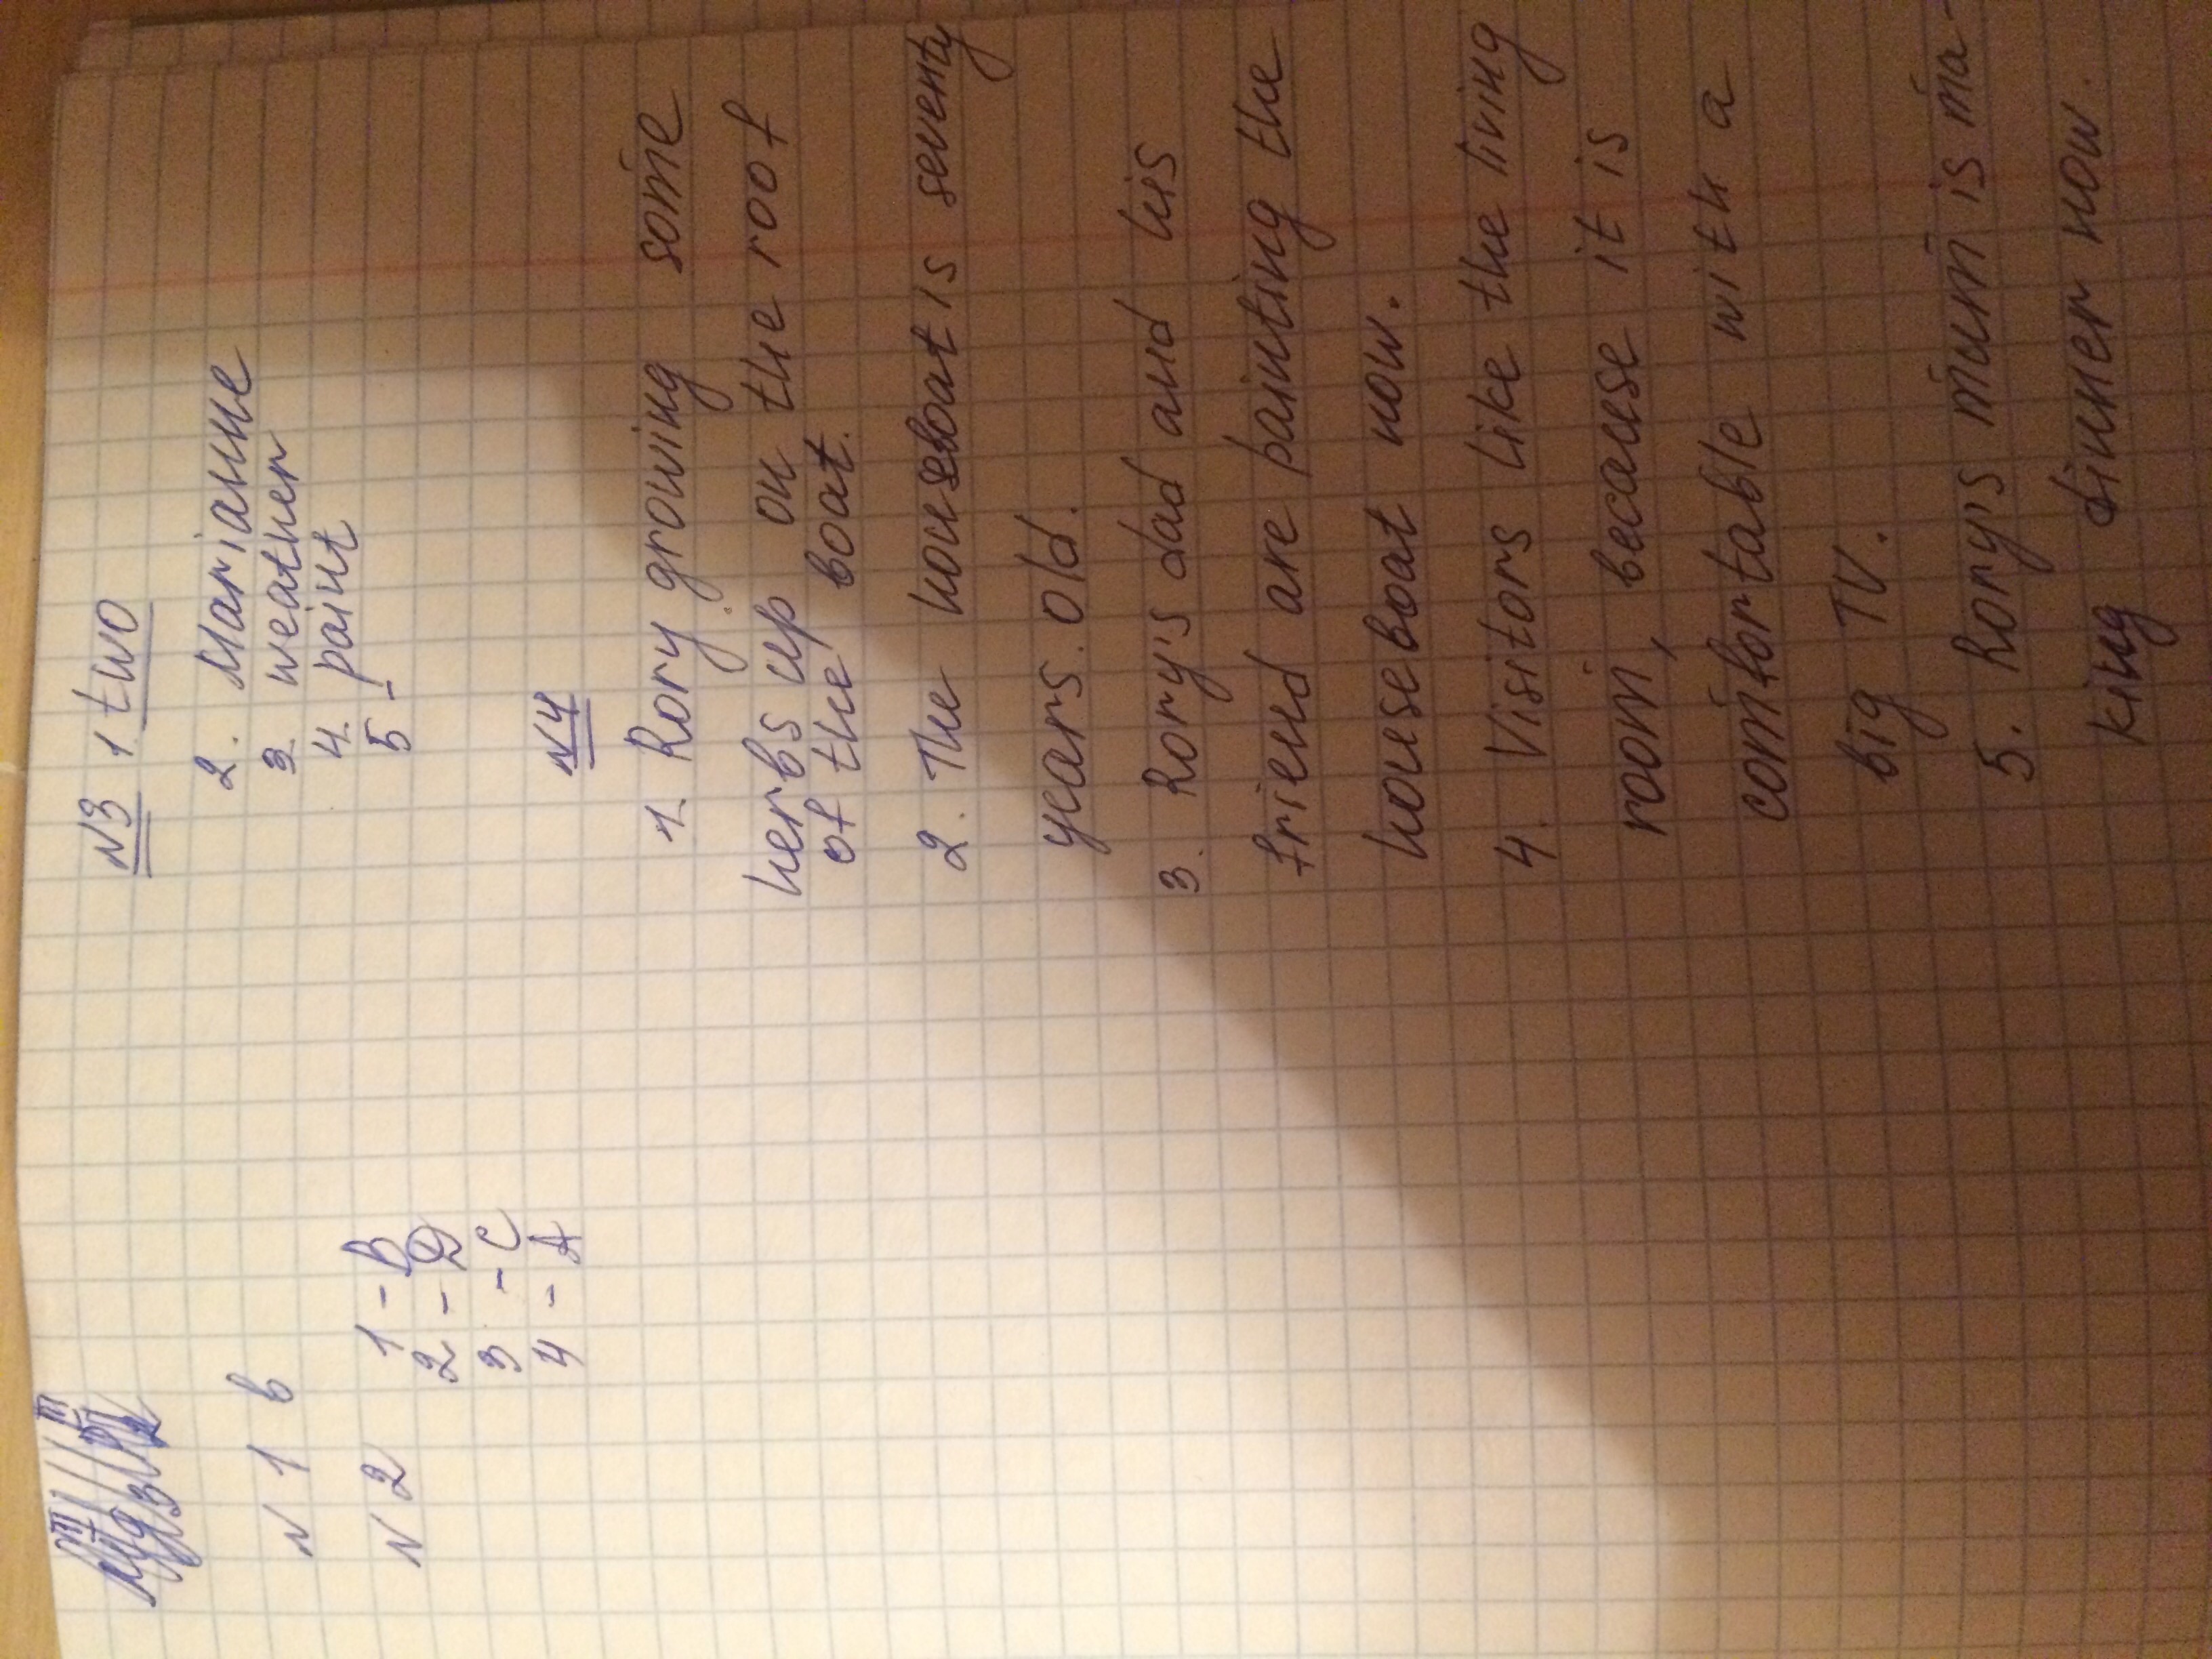 N 1 b
N 2 1 - B
2 - D
3 - C
4 - A
N3 1 two
2. Marianne
3. weather
4. paint
5 -
N4
1. Rory growing some
herbs up on the roof
of the boat.
2. The houseboat is seventy
years old.
3. Rory's dad and his
friend are painting the
houseboat now.
4. Visitors like the living
room, because it is
comfortable with a
big TV.
5. Rory's mum is ma-
king dinner now.